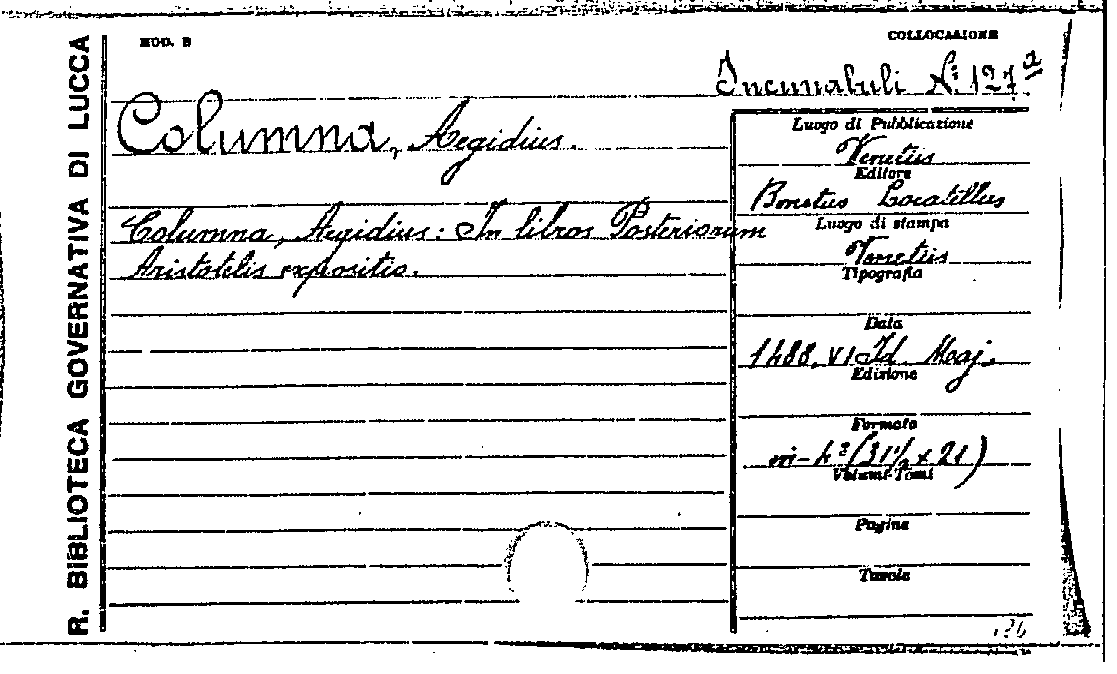 R. BIBLIOTECA GOVERNATIVA DI LUCCA
MOD. B
COLLOCAZIONE
Incunabuli N. 127a
Columna, Aegidius.
Columna, Aegidius: In libros Posteriorum
Aristotelis expositio.
Luogo di Pubblicazione
Venetiis
Editore
Bonetus Locatellus
Luogo di stampa
Venetiis
Tipografia
Data
1488, VI Id. Maaj.
Edizione
Formato
in-4º (31½ x 21)
Volumi-Tomi
Pagine
Tavole